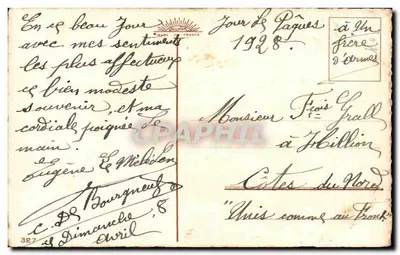 En ce beau Jour
avec mes sentiments
les plus affectueux
ce bien modeste
souvenir, et ma
cordiale poignée de
main.
Eugène Le
Bourgneuf
C. D.
le Dimanche 8
Avril
327
FRANCE
Jour de Pâques
1928.
à Un
frère
d'armes
Monsieur Fçois Grall
à Hillion
Côtes du Nord
"Unis comme au Front"
CARTAGRAPHILIE